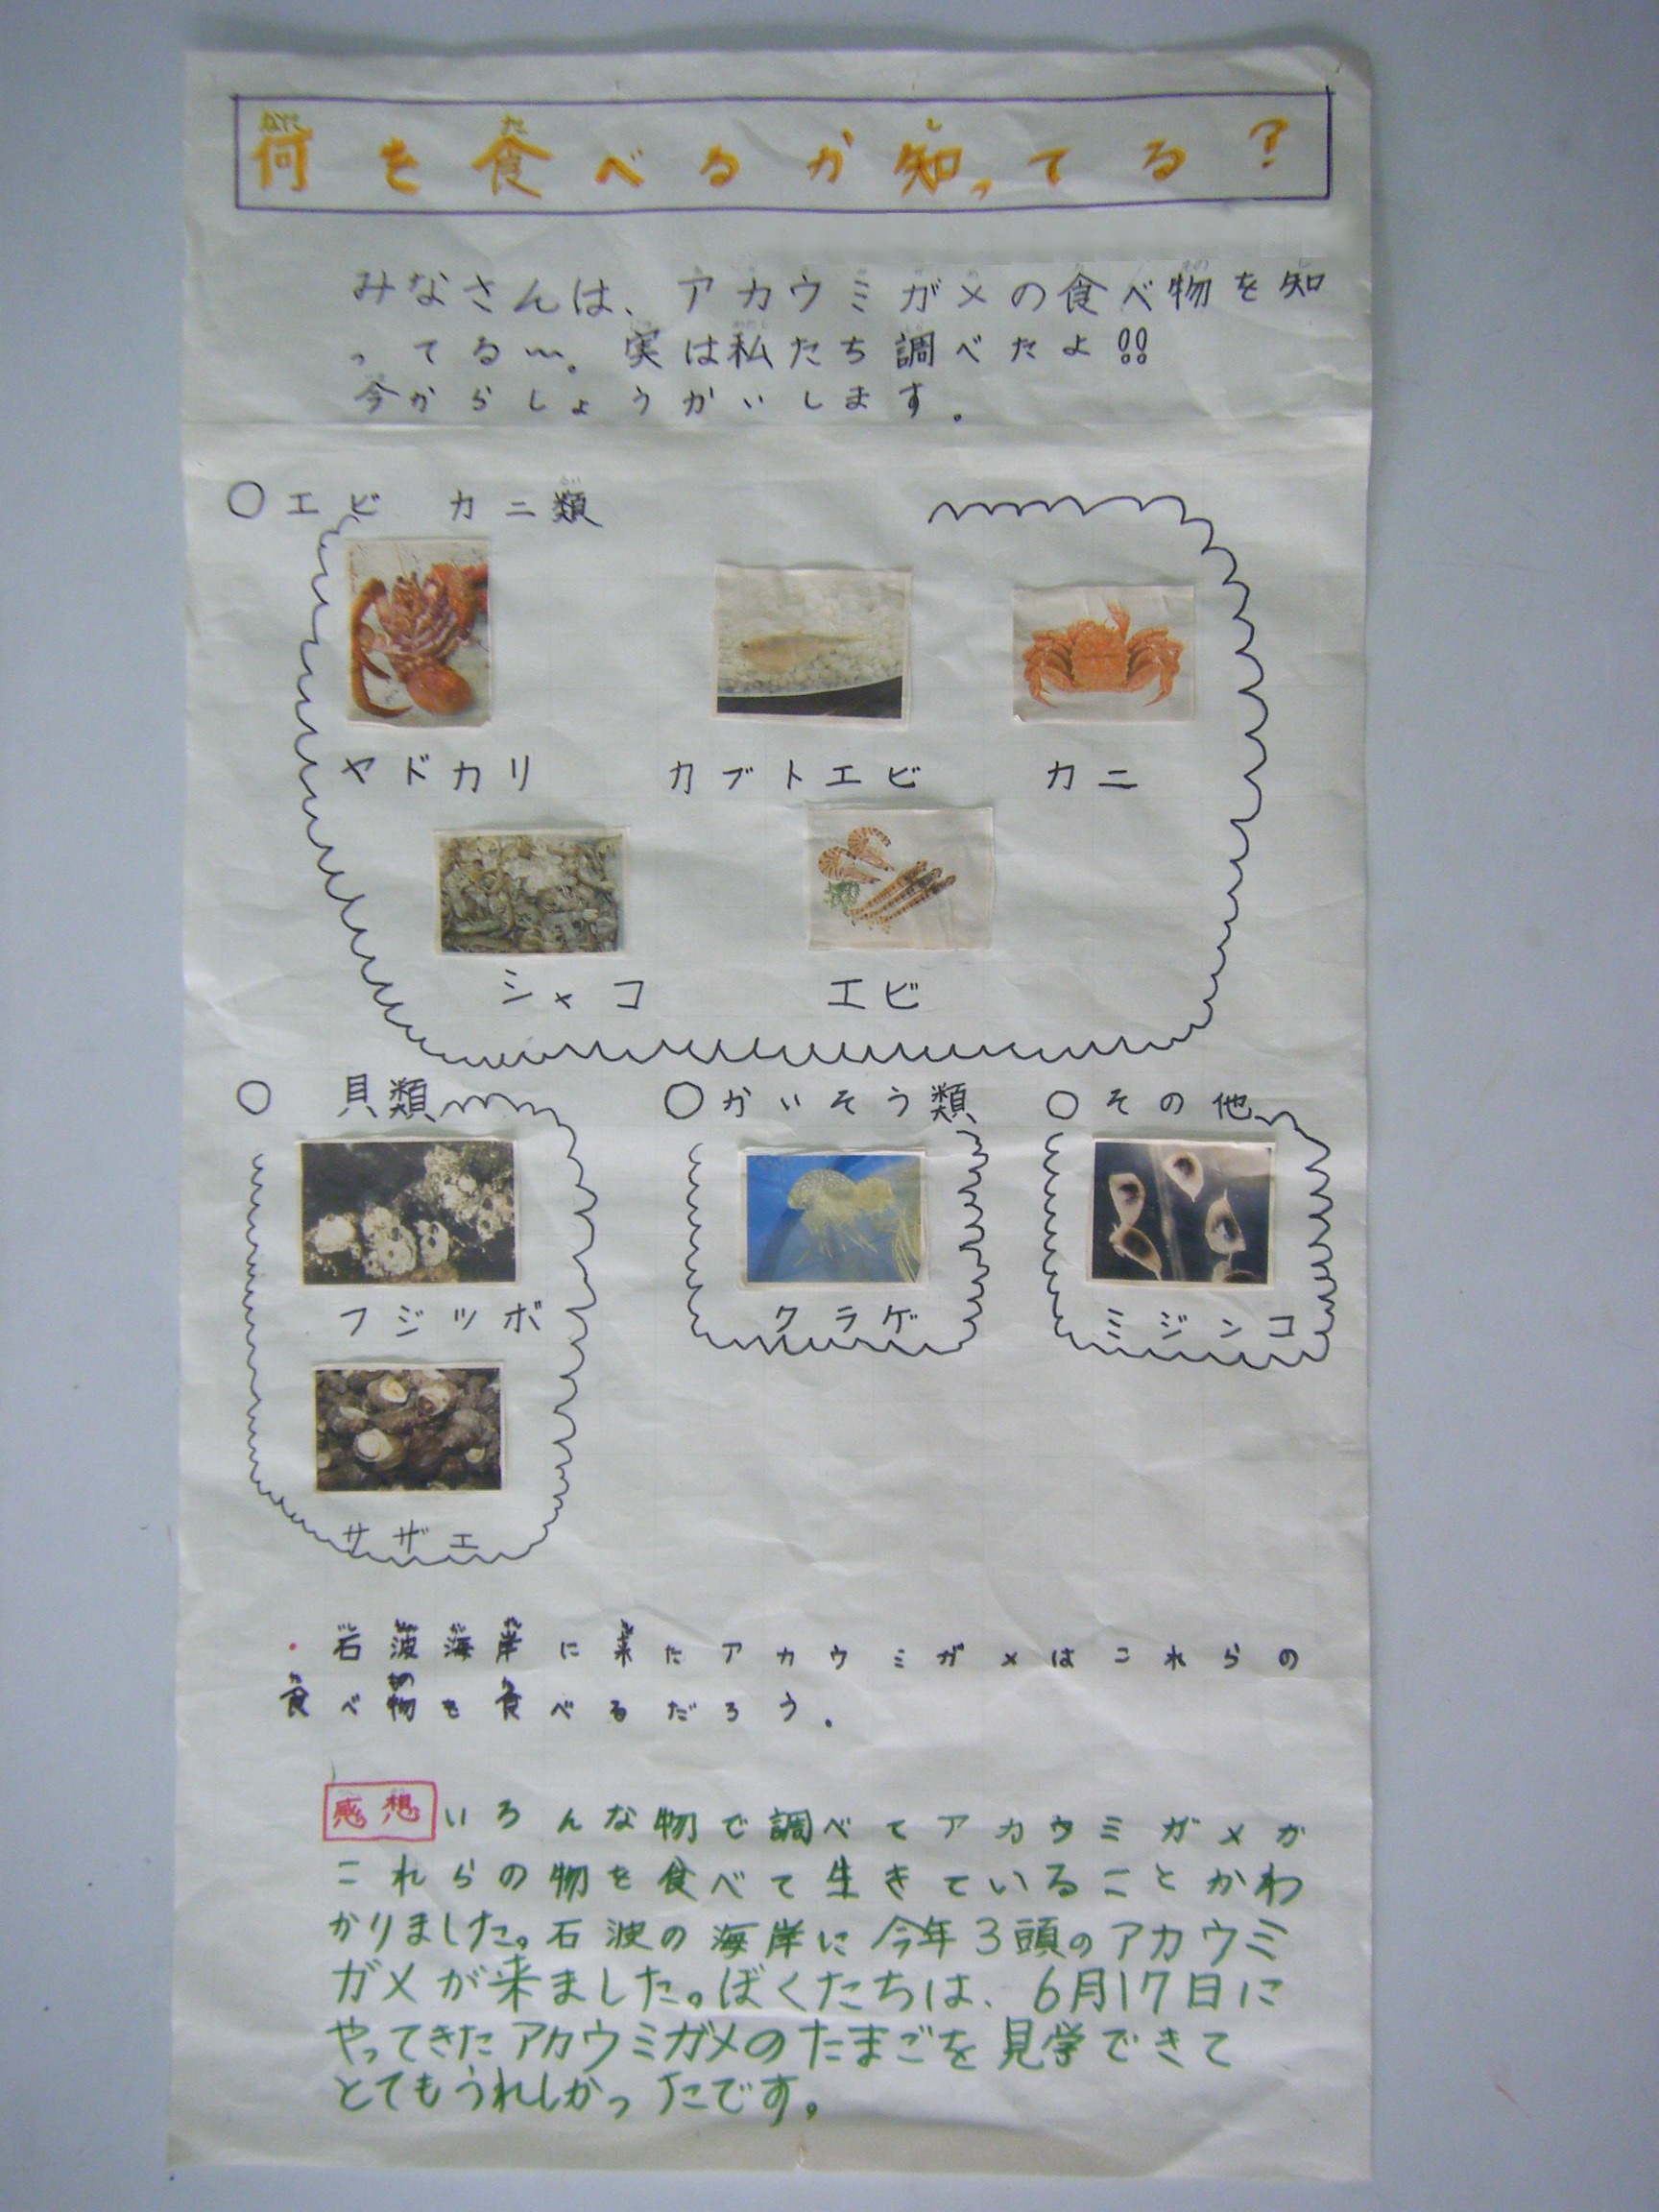 何を食べるか知ってる?
みなさんは、アカウミガメの食べ物を知
ってる〜。実は私たち調べたよ!!
今からしょうかいします。
○エビ カニ類
ヤドカリ カブトエビ カニ
シャコ エビ
○ 貝類
フジツボ
サザエ
○かいそう類
クラゲ
○その他
ミジンコ
・石波海岸に来たアカウミガメはこれらの
食べ物を食べるだろう。
感想 いろんな物で調べてアカウミガメが
これらの物を食べて生きていることがわ
かりました。石波の海岸に今年3頭のアカウミ
ガメが来ました。ぼくたちは、6月17日に
やってきたアカウミガメのたまごを見学できて
とてもうれしかったです。